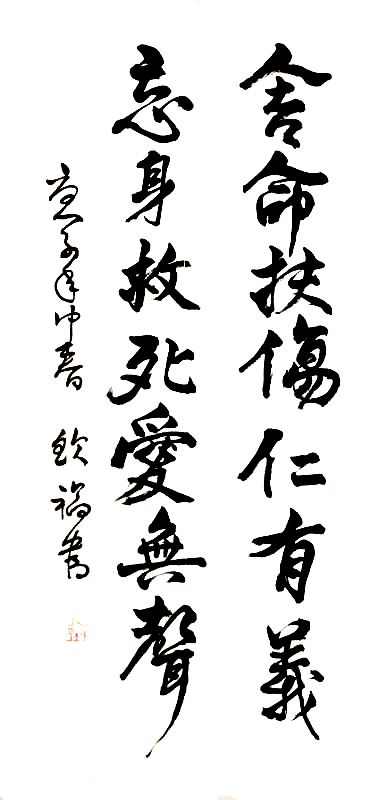 舍命扶傷仁有義
忘身救死愛無聲
庚子年仲春 欽福書